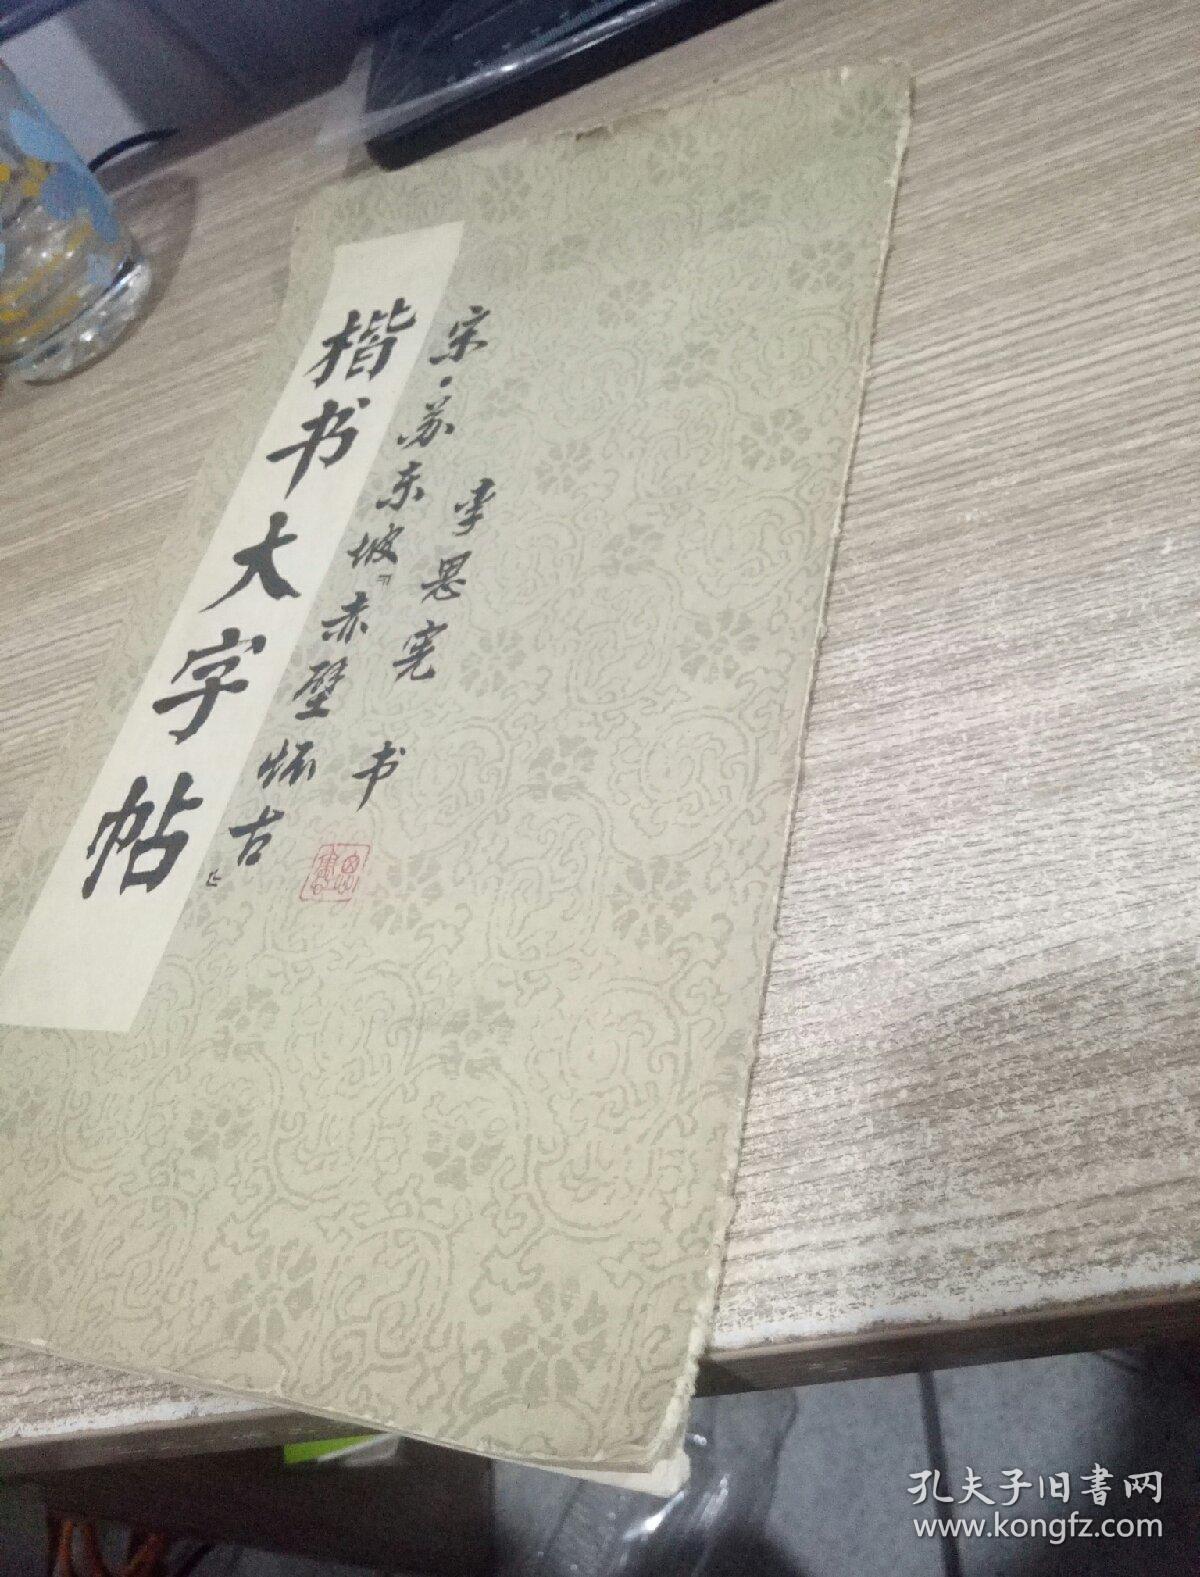 楷书大字帖
宋·苏东坡『赤壁怀古』
李思宪 书
孔夫子旧書网
www.kongfz.com